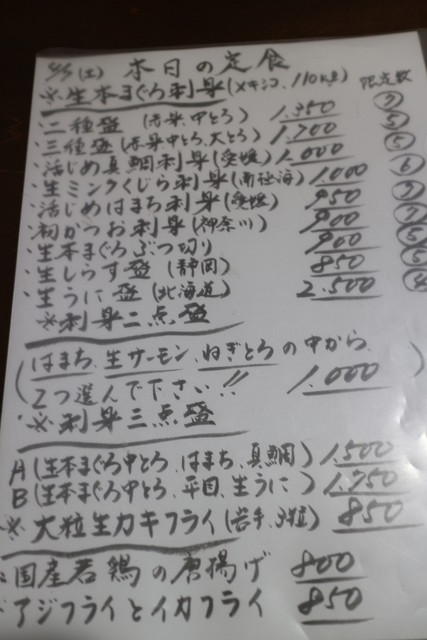 (土) 本日の定食
※生本まぐろ刺身(メキシコ、110kg) 限定数
・二種盛(赤身、中とろ) 1,350 ⑦
・三種盛(赤身、中とろ、大とろ) 1,700 ⑤
・活じめ真鯛刺身(愛媛) 1,000 ⑤
・生ミンクくじら刺身(南極海) 1,000 ⑥
・活じめはまち刺身(愛媛) 950 ⑦
・初かつお刺身(神奈川) 900 ⑦
・生本まぐろぶつ切り 900 ⑤
・生しらす盛(静岡) 850 ⑤
・生うに盛(北海道) 2,500 ④
※刺身二点盛
(はまち、生サーモン、ねぎとろの中から、
2つ選んで下さい!!) 1,000
※刺身三点盛
A(生本まぐろ中とろ、はまち、真鯛) 1,500
B(生本まぐろ中とろ、平目、生うに) 1,750
※大粒生カキフライ(岩手、3粒) 850
国産若鶏の唐揚げ 800
アジフライとイカフライ 850